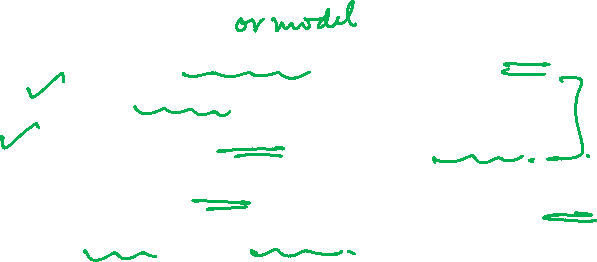 or model